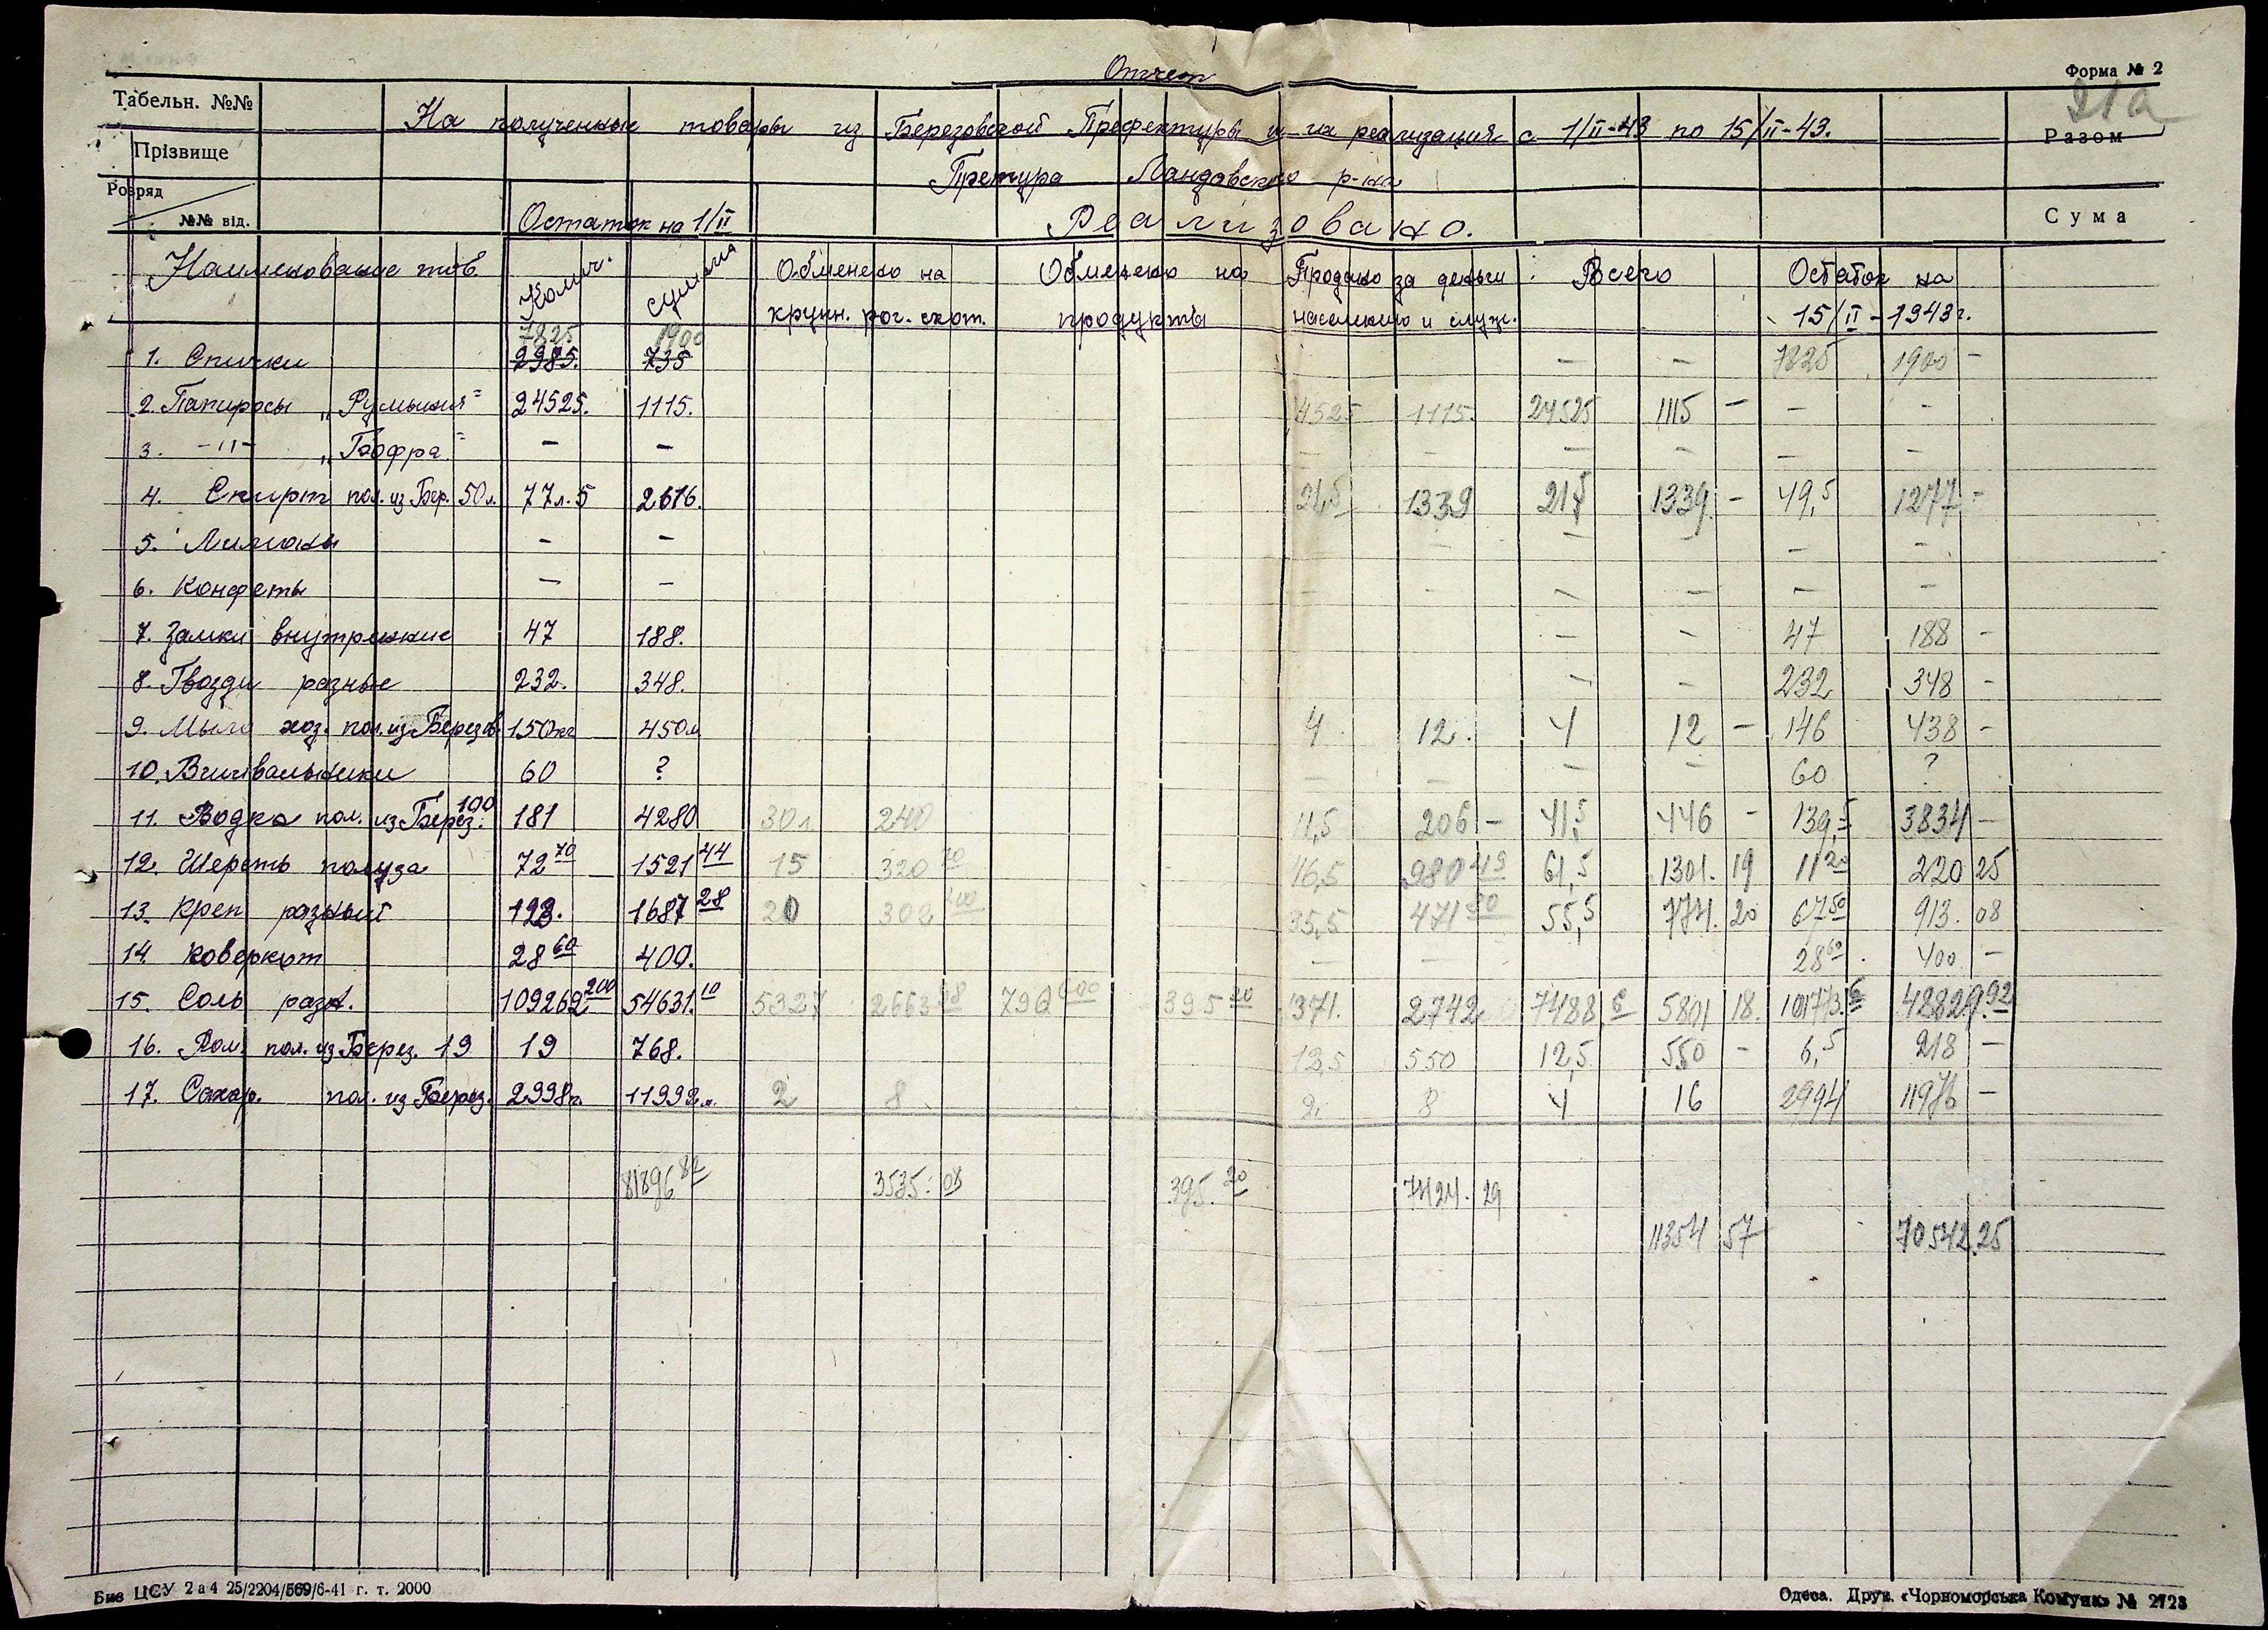 Отчет
Форма № 2
21а
Табельн. №№
На полученные товары из Березовской Префектуры и их реализация с 1/II-43 по 15/II-43.
Разом
Прізвище
Претура Ландовского р-на
Розряд
№№ від.
Остаток на 1/II
Реализовано.
Сума
Наименование тов.
Колич.
сумма
Обменено на крупн. рог. скот.
Обменено на продукты
Продано за деньги населению и служ.
Всего
Остаток на 15/II-1943г.
7825 1900
1. Спички 2985. 735 — — 7825 1900 —
2. Папиросы „Румыния" 24525. 1115. 4525 1115. 24525 1115 — — —
3. -"- — — — — — — — —
4. Спирт пол. из Бер. 50 л. 77л.5 2616. 21,5 1339 21,5 1339. — 49,5 1277 —
5. Лимоны — — — — — — —
6. Конфеты — — — — — — — —
7. Замки внутренние 47 188. — — 47 188 —
8. Гвозди разные 232. 348. — — 232 348 —
9. Мыло хоз. пол. из Березов. 150кг 450м 4 12. 4 12 — 146 438 —
10. 60 ? — — — — 60 ?
11. Водка пол. из Берез. 100 181 4280 30л 240 11,5 206 — 41,5 446 — 139,5 3834 —
12. Шерсть 72 70 1521 44 15 320 70 46,5 980 49 61,5 1301. 19 11 20 220 25
13. Креп разный 123. 1687 28 20 302 400 35,5 471 80 55,5 774. 20 67 50 913. 08
14. Коверкот 28 60 400. — — 28 60 400 —
15. Соль разн. 109262 200 54631. 10 5327 2663 28 790 600 395 20 1371. 2742 7488 6 5801 18. 101773. 6 48829. 92
16. Ром. пол. из Берез. 19 19 768. 12,5 550 12,5 550 — 6,5 218 —
17. Сахар. пол. из Берез. 2998к. 11992м. 2 8 2. 8 4 16 2994 11976 —
81896 82 3535. 08 395. 20 7424. 29
11354 57 70542. 25
Бив ЦСУ 2а4 25/2204/569/6-41 г. т. 2000
Одеса. Друк. «Чорноморська Комуна» № 2723